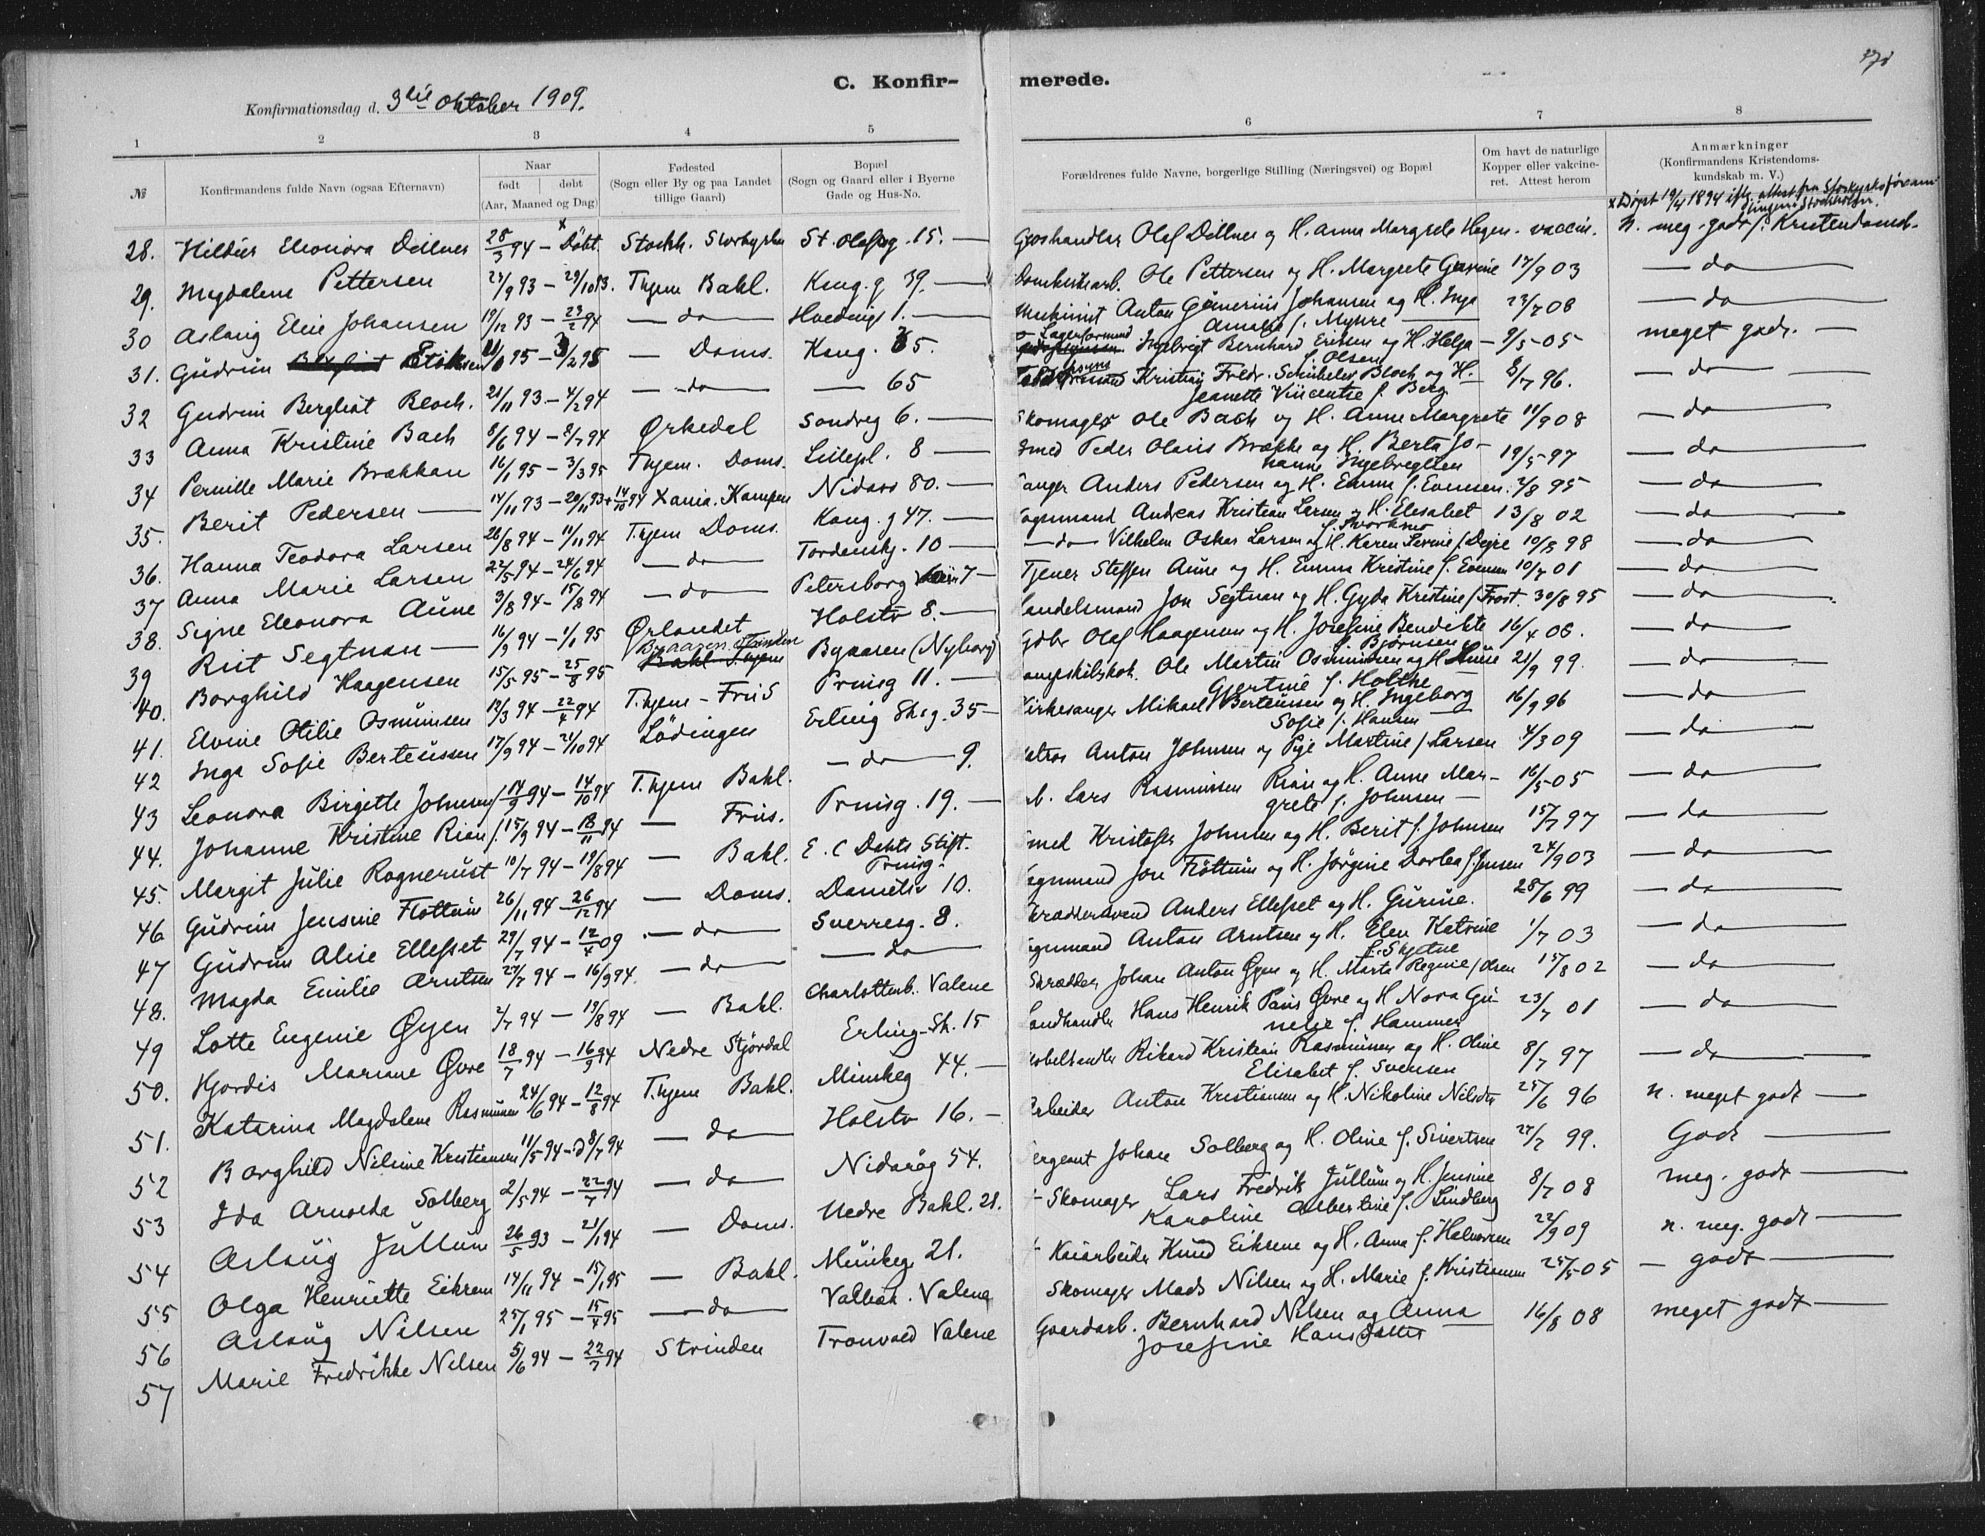 170
C. Konfir- merede.
Konfirmationsdag d. 3die oktober 1909.
1 2 3 4 5 6 7 8
№ Konfirmandens fulde Navn (ogsaa Efternavn) Naar født døbt (Aar, Maaned og Dag) Fødested (Sogn eller By og paa Landet tillige Gaard) Bopæl (Sogn og Gaard eller i Byerne Gade og Hus-No. Forældrenes fulde Navne, borgerlige Stilling (Næringsvei) og Bopæl Om havt de naturlige Kopper eller vakcineret. Attest herom Anmærkninger (Konfirmandens Kristendomskundskab m. V.)
x Døpt 19/4 1894 iflg. attest fra
28. Eleonora Dillner 28/3 94 – Døbt. Stockh. St. Olafsg. 15. Groshandler Olaf Dillner og H. Anna Margrete Hagen - vaccin. n. meg. godt f. Kristendomsk.
29. Magdalene Pettersen 24/9 93 – 29/10 93. Thjem Bakl. Kong. g 39. Ole Pettersen og H. Margrete 17/9 03 — do —
30 Aslaug Elise Johansen 19/12 93 – 23/2 94 — do — 1. Maskinist Anton Johansen og H. Inga Amalie f. Myhre 23/7 08 — do —
31. Gudrun Eriksen — Doms. Kong. 35. Lagerformand Ingebrigt Bernhard Eriksen og H. Helga f. Olsen 9/5 05 meget godt.
32 Gudrun Bergliot Bloch. 21/11 93 – 4/2 94 — do — — 65 Kristian Fredr. Bloch og H. Jeanette f. Berg 8/7 96. — do —
33 Anna Kristine Bach 8/6 94 – 8/7 94 Ørkedal Sondreg 6. Skomager Ole Bach og H. Anne Margrete 11/9 08 — do —
34 Pernille Marie Brækkan 16/1 95 – 3/3 95 Thjem. Doms. Lillepl. 8 Smed Peder Olaus Brække og H. Berta Johanne Ingebregtsen 19/5 97 — do —
35. Berit Pedersen 14/11 93 – 20/11 93 Xania. Kampen Nidaros 80. Anders Pedersen og H. Emma f. Evensen. 2/8 95 — do —
36. Hanna Teodora Larsen 26/8 94 – 11/11 94 T.hjem Doms. Kong. g 47. Andreas Kristian Larsen og H. Elesabet f. Svorkmo 13/8 02 — do —
37 Anna Marie Larsen 22/5 94 – 24/6 94 — do — Tordenskj. 10 — do — Vilhelm Oskar Larsen og H. Karen 10/8 98 — do —
38. Signe Eleonora Aune 3/8 94 – 15/8 94 — do — Petersborg 7 Tjener Steffen Aune og H. Emma Kristine f. Evensen 10/7 01 — do —
39 Segtnan 16/9 94 – 1/1 95 Ørlandet Holstv 8. Handelsmand Jon Segtnan og H. Gyda Kristine f. Frost. 30/8 95 — do —
40. Borghild Haagensen 15/5 95 – 25/8 95 Byaasen. Strinden Byaasen (Nyborg) Gdbr Olaf Haagensen og H. Josefine Bendikte f. Bjørnsen 16/4 08. — do —
41. Elvine Otilie Osmunsen 12/3 94 – 22/4 94 T.hjem – Frus Prinsg 11. Ole Martin Osmundsen og H. Gjertine f. Holthe 21/9 99. — do —
42 Inga Sofie Berteussen 17/9 94 – 21/10 94 Lödingen Erling Sk.g. 35 Kirkesanger Mikael Berteussen og H. Ingeborg Sofie f. Hansen 16/9 96 — do —
43 Leonora Birgitte Johnsen 14/9 94 – 14/10 94 T.hjem Bakl. — do — 9. Matros Anton Johnsen og Pije Martine f. Larsen 4/3 09 — do —
44. Johanne Kristine Rian 15/9 94 – 18/11 94 — Frus. Prinsg. 19. Lars Rasmussen Rian og H. Anne Margrete f. Johnsen 16/5 05 — do —
45. Margit Julie Rognerust 10/7 94 – 19/8 94 — Bakl. E. C Dahls Stift. Prinsg. Smed Kristofer Johnsen og H. Berit f. Johnsen 15/7 97 — do —
46 Gudrun Jensine Flöttum 26/11 94 – 26/12 94 — Doms. 10. Jon Flöttum og H. Jørgine Dorthea f. Jensen 24/9 03 — do —
47 Gudrun Alise Ellefset 29/7 94 – 12/4 09 — do — Sverresg. 8. Skræddersvend Anders Ellefset og H. Gurine. 28/6 99 — do —
48. Magda Emilie Arntsen 27/7 94 – 16/9 94. — do — — do — Anton Arntsen og H. Elen Katrine f. Skjetne 1/7 03 — do —
49 Lotte Eugenie Øyen 2/7 94 – 19/8 94 — Bakl. Charlottenb. Valene Skrædder Johan Anton Øyen og H. Marta Regine f. Olsen 15/8 02 — do —
50. Hjordis Mariane Øvre 18/7 94 – 16/9 94 Nedre Stjördal Erling-Sk. 15 Landhandler Hans Henrik Øvre og H Nora f. Hammer 23/7 01 — do —
51. Katarina Magdalene Rasmussen 24/6 94 – 12/8 94 T.hjem Bakl. Munkeg 44. Rikard Kristian Rasmussen og H. Oline Elisabet f. Svensen 8/7 97 — do —
52 Borghild Niline Kristiansen 11/5 94 – 8/7 94 — do — Holstv 16. Arbeider Anton Kristiansen og H. Nikoline Nilsdtr 25/6 96 n. meget godt
53 Ida Arnolda Solberg 2/5 94 – 22/7 94 — do — Nidaróg 54. Sergeant Johan Solberg og H. Oline f. Sivertsen 27/7 99. Godt
54 Aslaug Jullum 26/5 93 – 21/1 94 — Doms. Nedre Bakl. 21. Skomager Lars Fredrik Jullum og H. Jensine Karoline Albertine f. Lindberg 8/7 08 meg. godt
55 Olga Henriette Eikrem 14/11 94 – 15/1 95 — Bakl. Munkeg 21. Kaiarbeider Knud Eikrem og H. Anna f. Halvorsen 22/9 09 n. meg. godt
56 Aslaug Nilsen 25/1 95 – 15/4 95 — do — Valbak. Valene Skomager Mads Nilsen og H. Marie f. Kristiansen 25/5 05 — godt
57 Marie Fredrikke Nilsen 5/6 94 – 22/7 94 Strinden Tronvold Valene Gaardarb. Bernhard Nilsen og Anna Josefine Hansdatter 16/8 08 meget godt